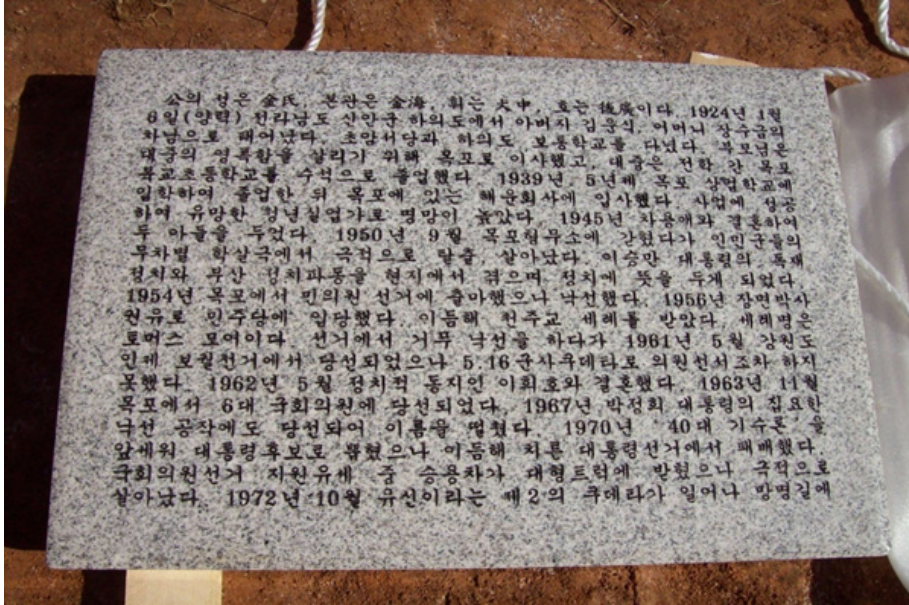 공의 성은 金氏, 본관은 金海, 휘는 大中, 호는 後廣이다. 1924년 1월
6일(양력) 전라남도 신안군 하의도에서 아버지 김운식, 어머니 장수금의
차남으로 태어났다. 초암서당과 하의도 보통학교를 다녔다. 부모님은
대중의 영특함을 살리기 위해 목포로 이사했고, 대중은 전학 간 목포
북교초등학교를 수석으로 졸업했다. 1939년 5년제 목포 상업학교에
입학하여 졸업한 뒤 목포에 있는 해운회사에 입사했다. 사업에 성공
하여 유망한 청년실업가로 명망이 높았다. 1945년 차용애와 결혼하여
두 아들을 두었다. 1950년 9월 목포형무소에 갇혔다가 인민군들의
무차별 학살극에서 극적으로 탈출, 살아났다. 이승만 대통령의 독재
정치와 부산 정치파동을 현지에서 겪으며 정치에 뜻을 두게 되었다.
1954년 목포에서 민의원 선거에 출마했으나 낙선했다. 1956년 장면박사
원유로 민주당에 입당했다. 이듬해 천주교 세례를 받았다. 세례명은
토머스 모어이다. 선거에서 거푸 낙선을 하다가 1961년 5월 강원도
인제 보궐선거에서 당선되었으나 5.16군사쿠데타로 의원선서조차 하지
못했다. 1962년 5월 정치적 동지인 이희호와 결혼했다. 1963년 11월
목포에서 6대 국회의원에 당선되었다. 1967년 박정희 대통령의 집요한
낙선 공작에도 당선되어 이름을 떨쳤다. 1970년 '40대 기수론'을
앞세워 대통령후보로 뽑혔으나 이듬해 치른 대통령선거에서 패배했다.
국회의원선거 지원유세 중 승용차가 대형트럭에 받혔으나 극적으로
살아났다. 1972년 10월 유신이라는 제2의 쿠데타가 일어나 망명길에